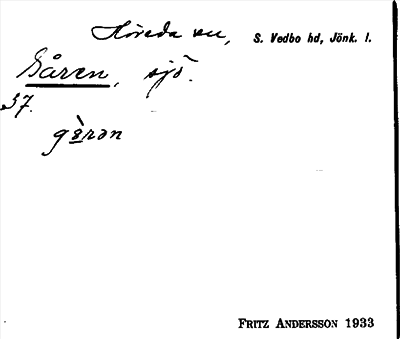 Höreda sn, S. Vedbo hd, Jönk. l.
Gåren, sjö.
37.
gȧ̀rən
FRITZ ANDERSSON 1933